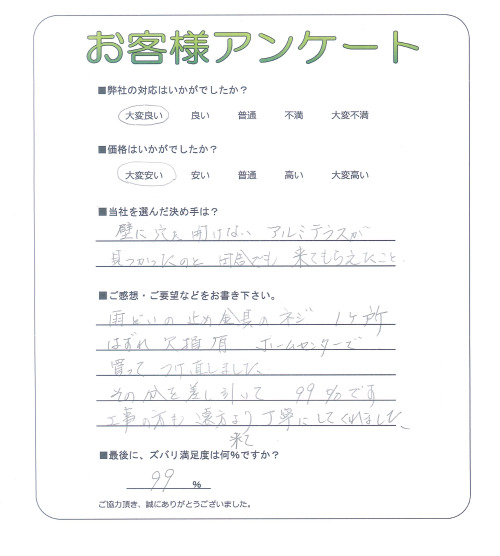 お客様アンケート
■弊社の対応はいかがでしたか？
大変良い 良い 普通 不満 大変不満
■価格はいかがでしたか？
大変安い 安い 普通 高い 大変高い
■当社を選んだ決め手は？
壁に穴を開けない アルミテラスが
見つかったのと 田舎でも 来てもらえたこと.
■ご感想・ご要望などをお書き下さい。
雨どいの止め金具のネジ 1ヶ所
はずれ 欠損 ホームセンターで
買って つけ直しました、
その分を差し引いて 99%です
工事の方も 遠方より 丁寧にしてくれました、
来て
■最後に、ズバリ満足度は何%ですか？
99 %
ご協力頂き、誠にありがとうございました。